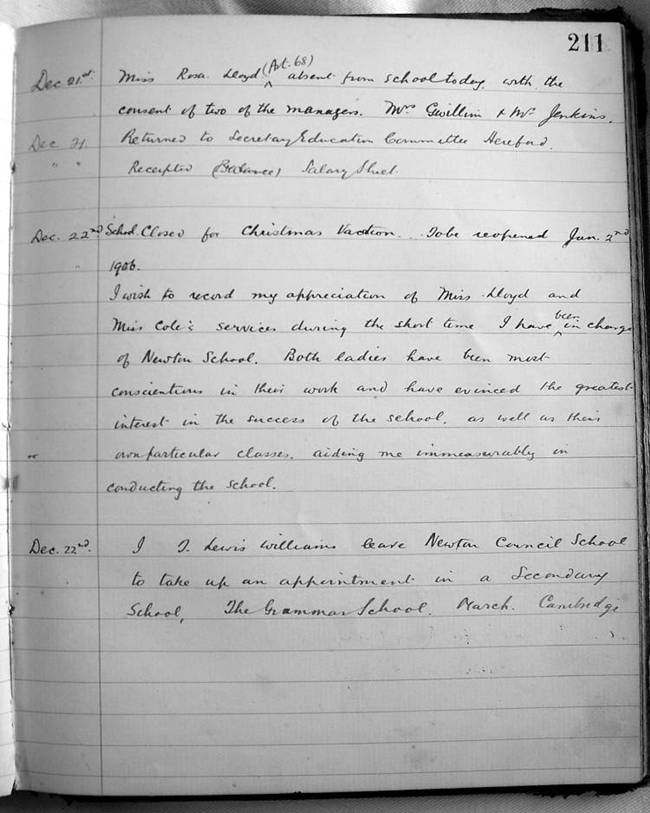 211
Dec 21st. Miss Rosa Lloyd (Art. 68) absent from school today with the
consent of two of the managers. Mrs Gwillim & Mr Jenkins.
Dec 21. Returned to Secretary Education Committee Hereford.
" " Receipted (Balance) Salary Sheet.
Dec. 22nd School Closed for Christmas Vacation. To be reopened Jan. 2nd
" 1906.
I wish to record my appreciation of Miss Lloyd and
Miss Cole's services during the short time I have been in charge
of Newton School. Both ladies have been most
conscientious in their work and have evinced the greatest
interest in the success of the school, as well as their
own particular classes, aiding me immeasurably in
conducting the school.
Dec. 22nd. I T. Lewis Williams leave Newton Council School
to take up an appointment in a Secondary
School, The Grammar School, March. Cambridge